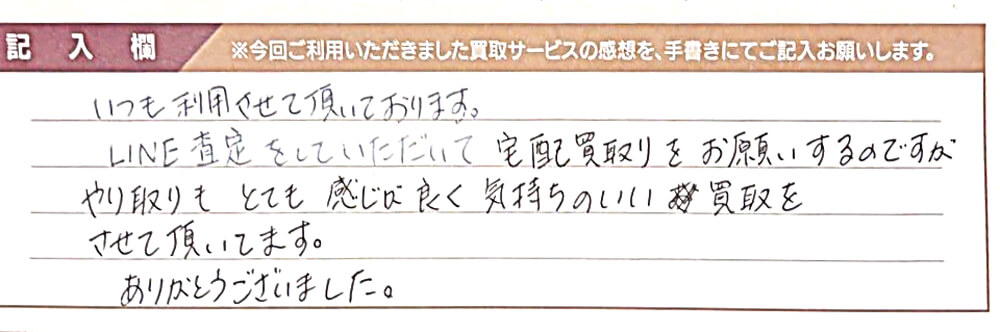 記入欄 ※今回ご利用いただきました買取サービスの感想を、手書きにてご記入お願いします。
いつも利用させて頂いております。
LINE査定をしていただいて宅配買取りをお願いするのですが
やり取りもとても感じが良く気持ちのいい買取を
させて頂いてます。
ありがとうございました。